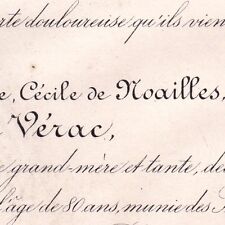 rte douloureuse qu'ils vien
e, Cécile de Noailles,
Vérac,
e grand-mère et tante, dé
l'âge de 80 ans, munie des